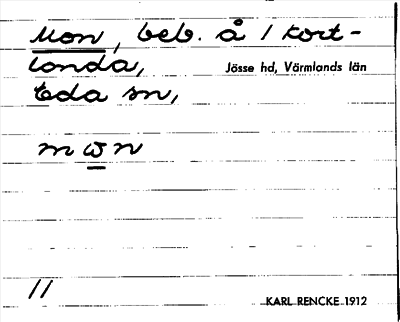 Mon, beb. å 1 Kort-
landa,
Jösse hd, Värmlands län
Eda sn,
m ω n
11
KARL RENCKE 1912